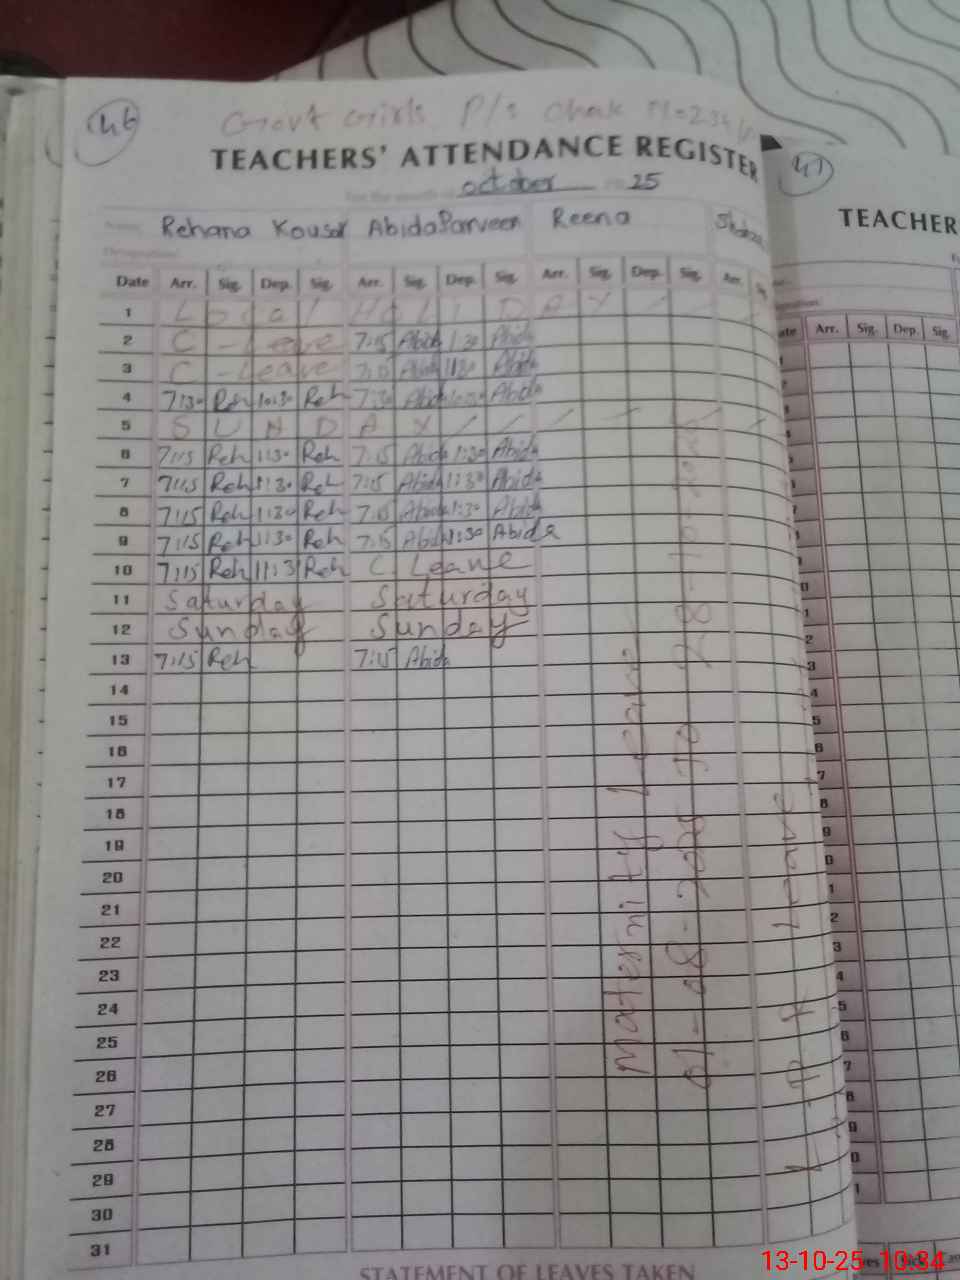 46
Govt Girls P/s Chak
TEACHERS' ATTENDANCE REGISTER
october 25
Rehana Kousar Abida Parveen Reena
Date Arr. Sig. Dep. Sig. Arr. Sig. Dep. Sig. Arr. Sig. Dep. Sig. Arr.
1 Local HOLIDAY
2 C - Leave 7:15 Abida 1:30 Abida
3 C - Leave 7:15 Abida 1:30 Abida
4 7:30 Reh 10:30 Reh 7:30 Abida Abida
5 SUNDAY
6 7:15 Reh 1:30 Reh 7:15 Abida 1:30 Abida
7 7:15 Reh 1:30 Reh 7:15 Abida 1:30 Abida
8 7:15 Reh 1:30 Reh 7:15 Abida 1:30 Abida
9 7:15 Reh 1:30 Reh 7:15 Abida 1:30 Abida
10 7:15 Reh Reh C Leave
11 Saturday Saturday
12 Sunday Sunday
13 7:15 Reh 7:15 Abida
14
15
16
17
18
19
20
21
22
23
24
25
26
27
28
29
30
31
Maternity Leave
01-08-2025 To 28-10-2025
Leave
STATEMENT OF LEAVES TAKEN
47
TEACHER
Arr. Sig. Dep. Sig.
13-10-25 10:34